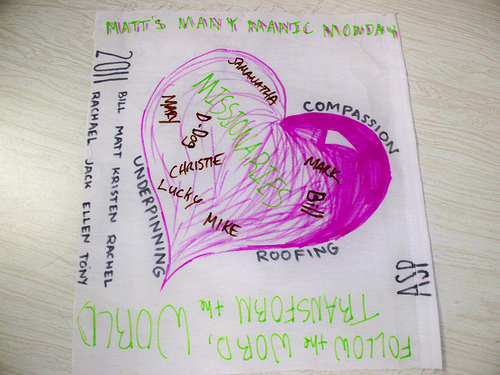 MATT'S MANY MANIC MONDAY
2011
BILL MATT KRISTEN RACHEL
RACHAEL JACK ELLEN TONY
SAMANATHA
MISSIONARIES
MARY
D-Dog
CHRISTIE
LUCKY
MIKE
MARK
Bill
COMPASSION
UNDERPINNING
ROOFING
ASP
FOLLOW the WORD,
TRANSFORM the WORLD